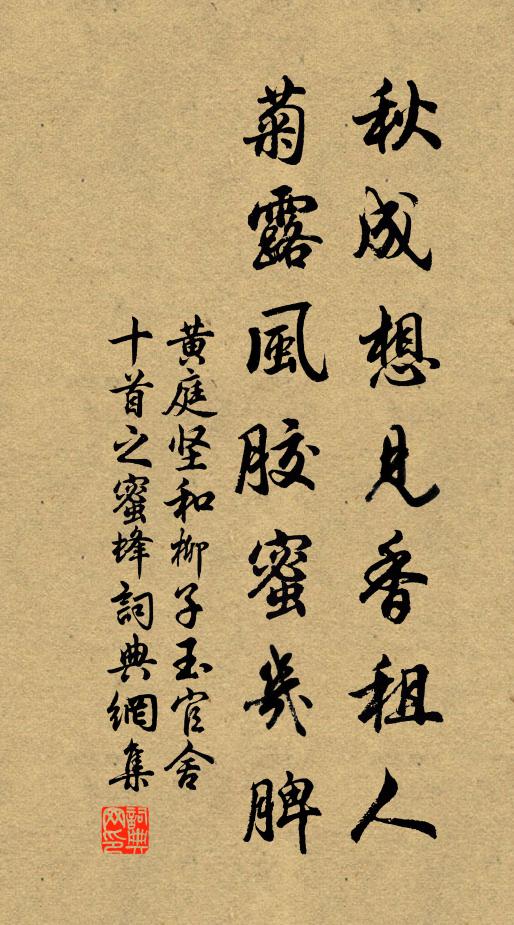 秋成想見香租人
菊露風胶蜜幾脾
黄庭坚和柳子玉官舍
十首之蜜蜂詞典網集